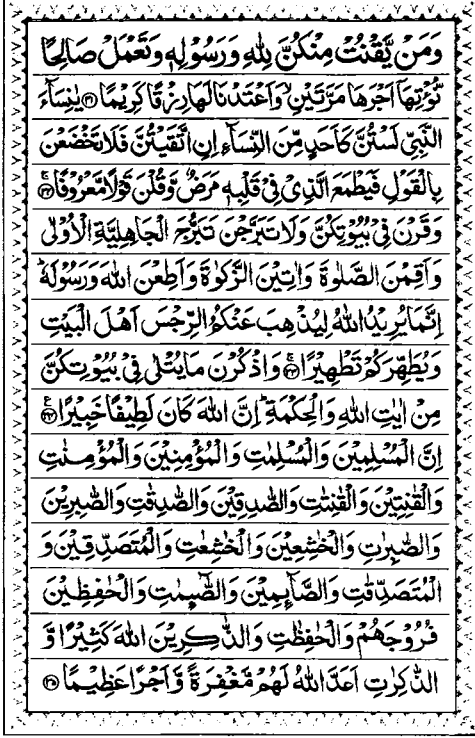 وَمَنْ يَّقْنُتْ مِنْكُنَّ لِلّٰهِ وَرَسُوْلِهٖ وَتَعْمَلْ صَالِحًا
نُّؤْتِهَآ اَجْرَهَا مَرَّتَيْنِ ۙ وَاَعْتَدْنَا لَهَا رِزْقًا كَرِيْمًا ﴿۳۱﴾ يٰنِسَآءَ
النَّبِيِّ لَسْتُنَّ كَاَحَدٍ مِّنَ النِّسَآءِ اِنِ اتَّقَيْتُنَّ فَلَا تَخْضَعْنَ
بِالْقَوْلِ فَيَطْمَعَ الَّذِىْ فِىْ قَلْبِهٖ مَرَضٌ وَّقُلْنَ قَوْلًا مَّعْرُوْفًا ﴿۳۲﴾
وَقَرْنَ فِىْ بُيُوْتِكُنَّ وَلَا تَبَرَّجْنَ تَبَرُّجَ الْجَاهِلِيَّةِ الْاُوْلٰى
وَاَقِمْنَ الصَّلٰوةَ وَاٰتِيْنَ الزَّكٰوةَ وَاَطِعْنَ اللّٰهَ وَرَسُوْلَهٗ ؕ
اِنَّمَا يُرِيْدُ اللّٰهُ لِيُذْهِبَ عَنْكُمُ الرِّجْسَ اَهْلَ الْبَيْتِ
وَيُطَهِّرَكُمْ تَطْهِيْرًا ﴿۳۳﴾ وَاذْكُرْنَ مَا يُتْلٰى فِىْ بُيُوْتِكُنَّ
مِنْ اٰيٰتِ اللّٰهِ وَالْحِكْمَةِ ؕ اِنَّ اللّٰهَ كَانَ لَطِيْفًا خَبِيْرًا ﴿۳۴﴾
اِنَّ الْمُسْلِمِيْنَ وَالْمُسْلِمٰتِ وَالْمُؤْمِنِيْنَ وَالْمُؤْمِنٰتِ
وَالْقٰنِتِيْنَ وَالْقٰنِتٰتِ وَالصّٰدِقِيْنَ وَالصّٰدِقٰتِ وَالصّٰبِرِيْنَ
وَالصّٰبِرٰتِ وَالْخٰشِعِيْنَ وَالْخٰشِعٰتِ وَالْمُتَصَدِّقِيْنَ وَ
الْمُتَصَدِّقٰتِ وَالصَّآئِمِيْنَ وَالصّٰٓئِمٰتِ وَالْحٰفِظِيْنَ
فُرُوْجَهُمْ وَالْحٰفِظٰتِ وَالذّٰكِرِيْنَ اللّٰهَ كَثِيْرًا وَّ
الذّٰكِرٰتِ اَعَدَّ اللّٰهُ لَهُمْ مَّغْفِرَةً وَّاَجْرًا عَظِيْمًا ﴿۳۵﴾